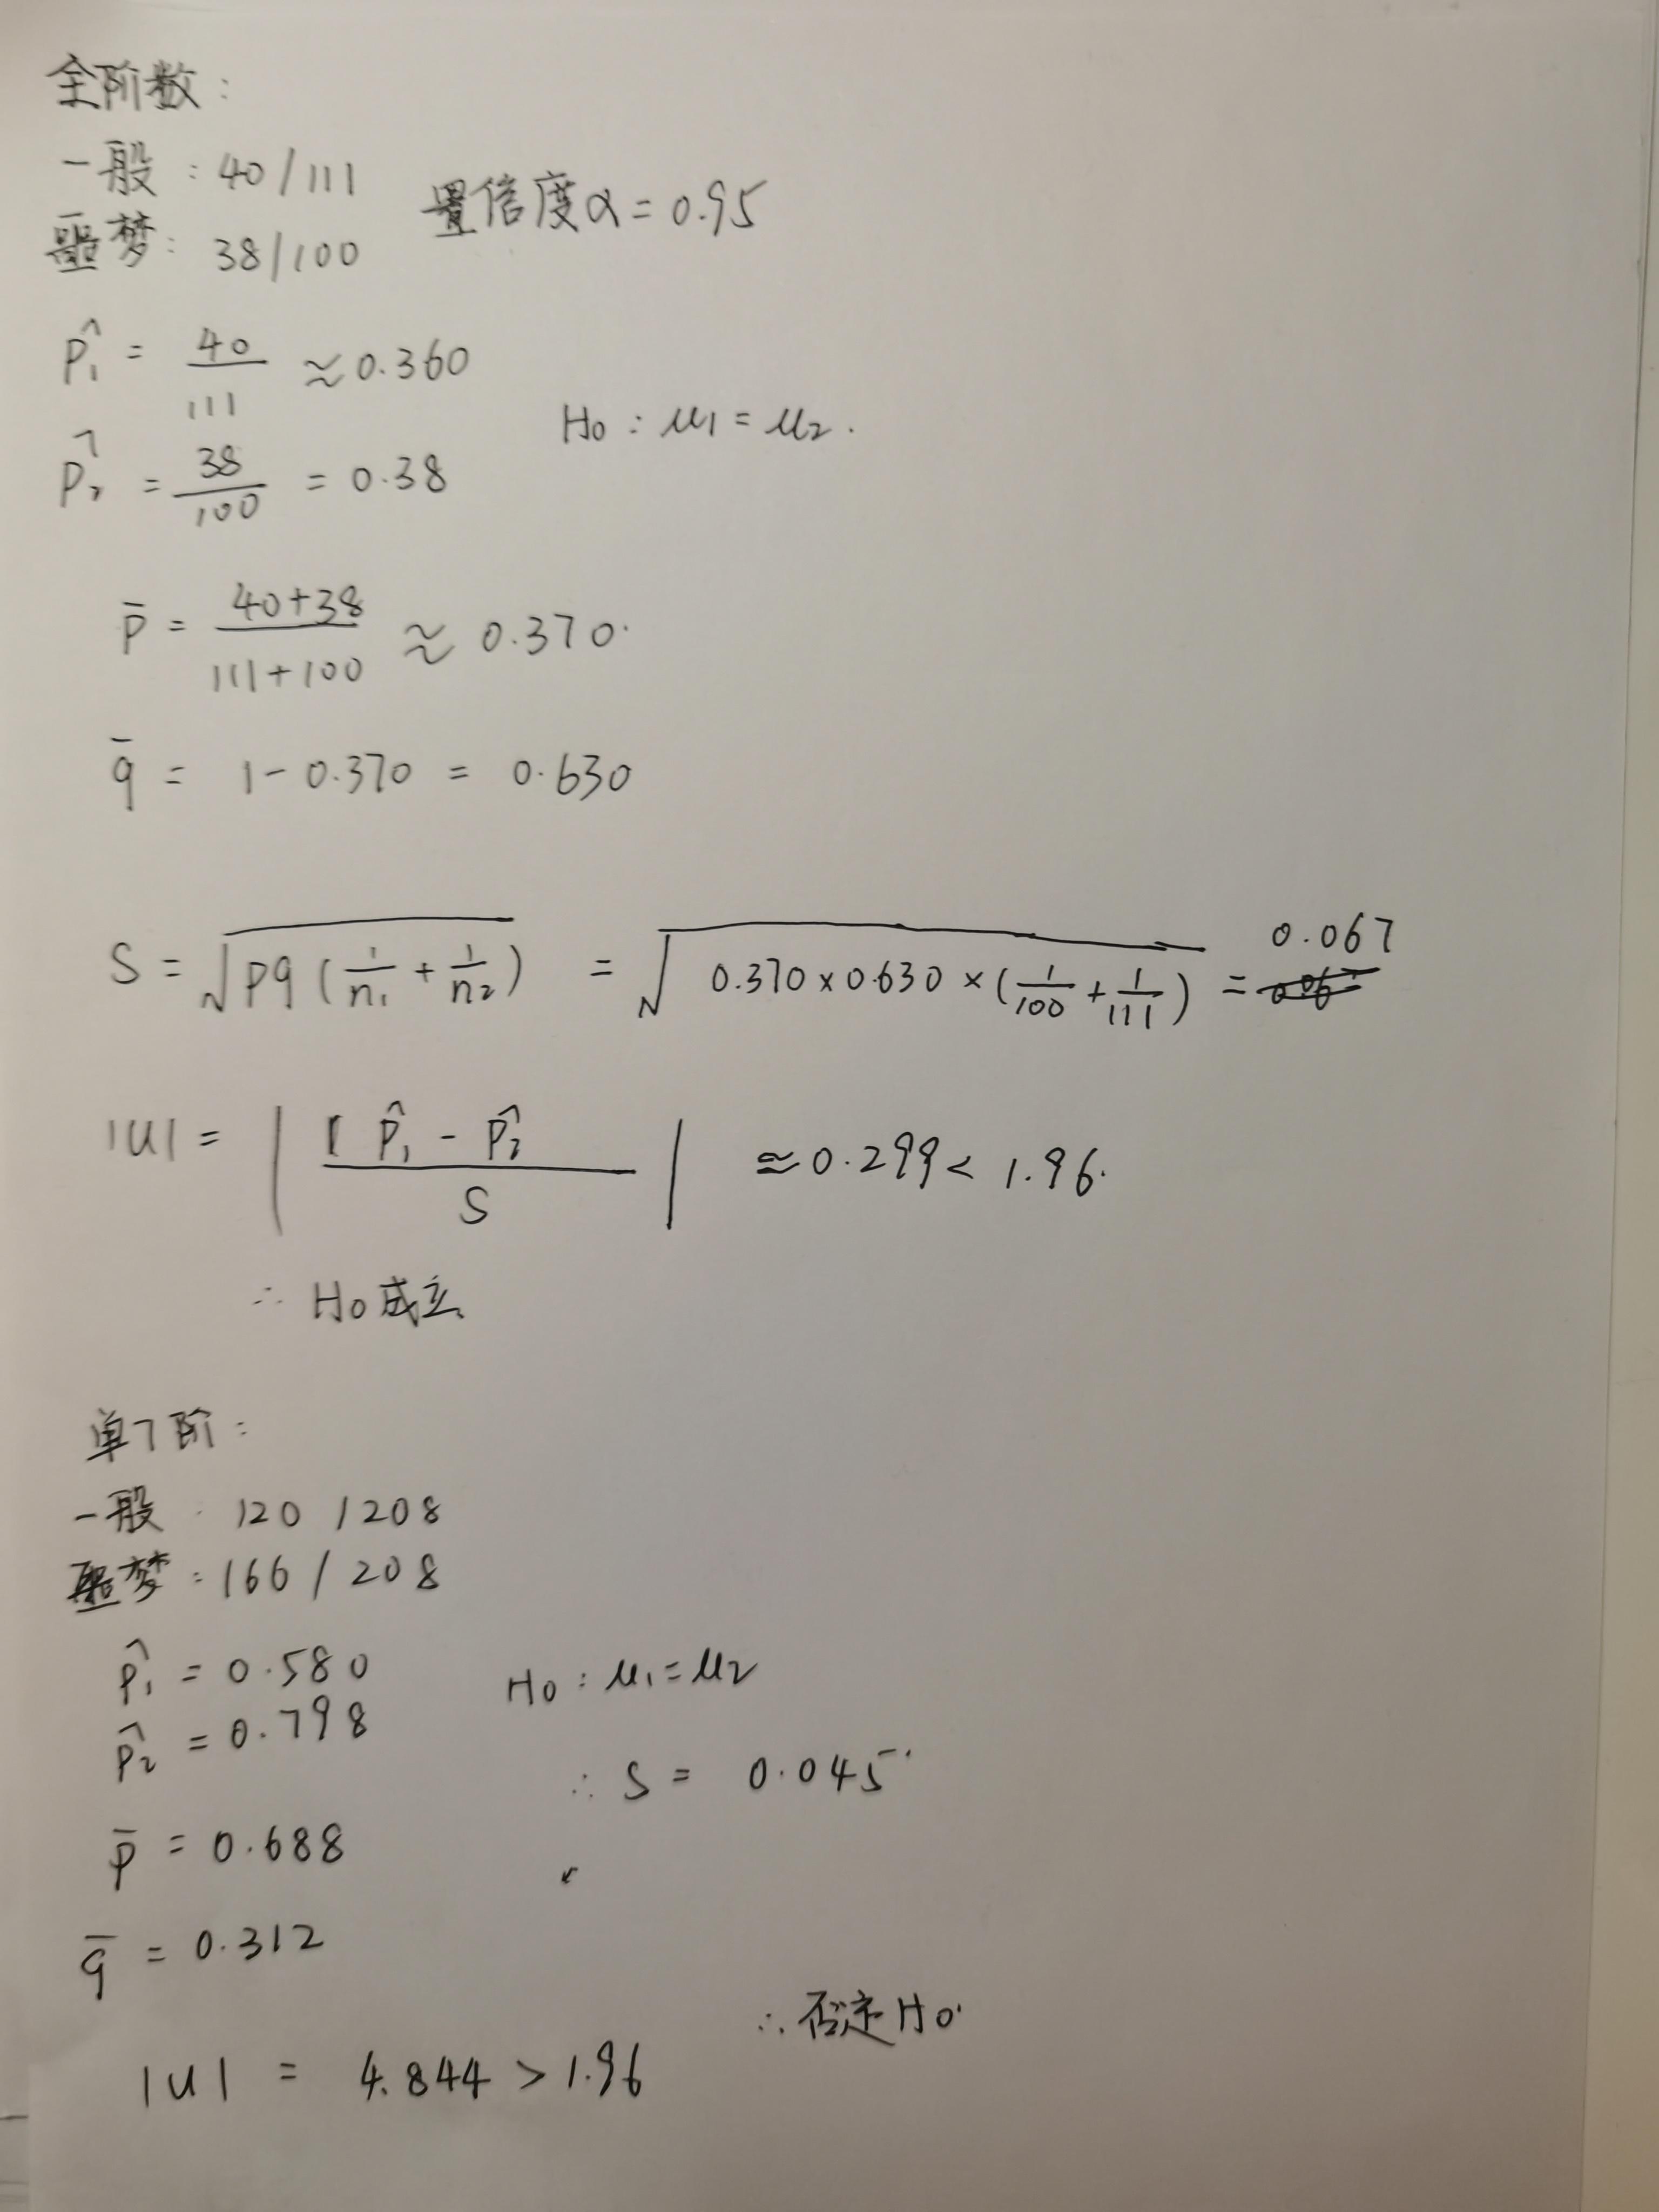 全阶数：
一般：40/111
置信度α=0.95
噩梦：38/100
p̂₁ = 40/111 ≈0.360
H₀：μ₁=μ₂.
p̂₂ = 38/100 = 0.38
p̄ = (40+38)/(111+100) ≈ 0.370.
q̄ = 1-0.370 = 0.630
S = √(pq(1/n₁+1/n₂)) = √(0.370×0.630×(1/100+1/111)) = 0.067
|U| = |(p̂₁-p̂₂)/S| ≈0.299< 1.96.
∴ H₀成立
单7阶：
一般：120/208
噩梦：166/208
p̂₁ = 0.580
H₀：μ₁=μ₂
p̂₂ = 0.798
∴ S = 0.045
p̄ = 0.688
q̄ = 0.312
∴否定H₀.
|U| = 4.844 > 1.96